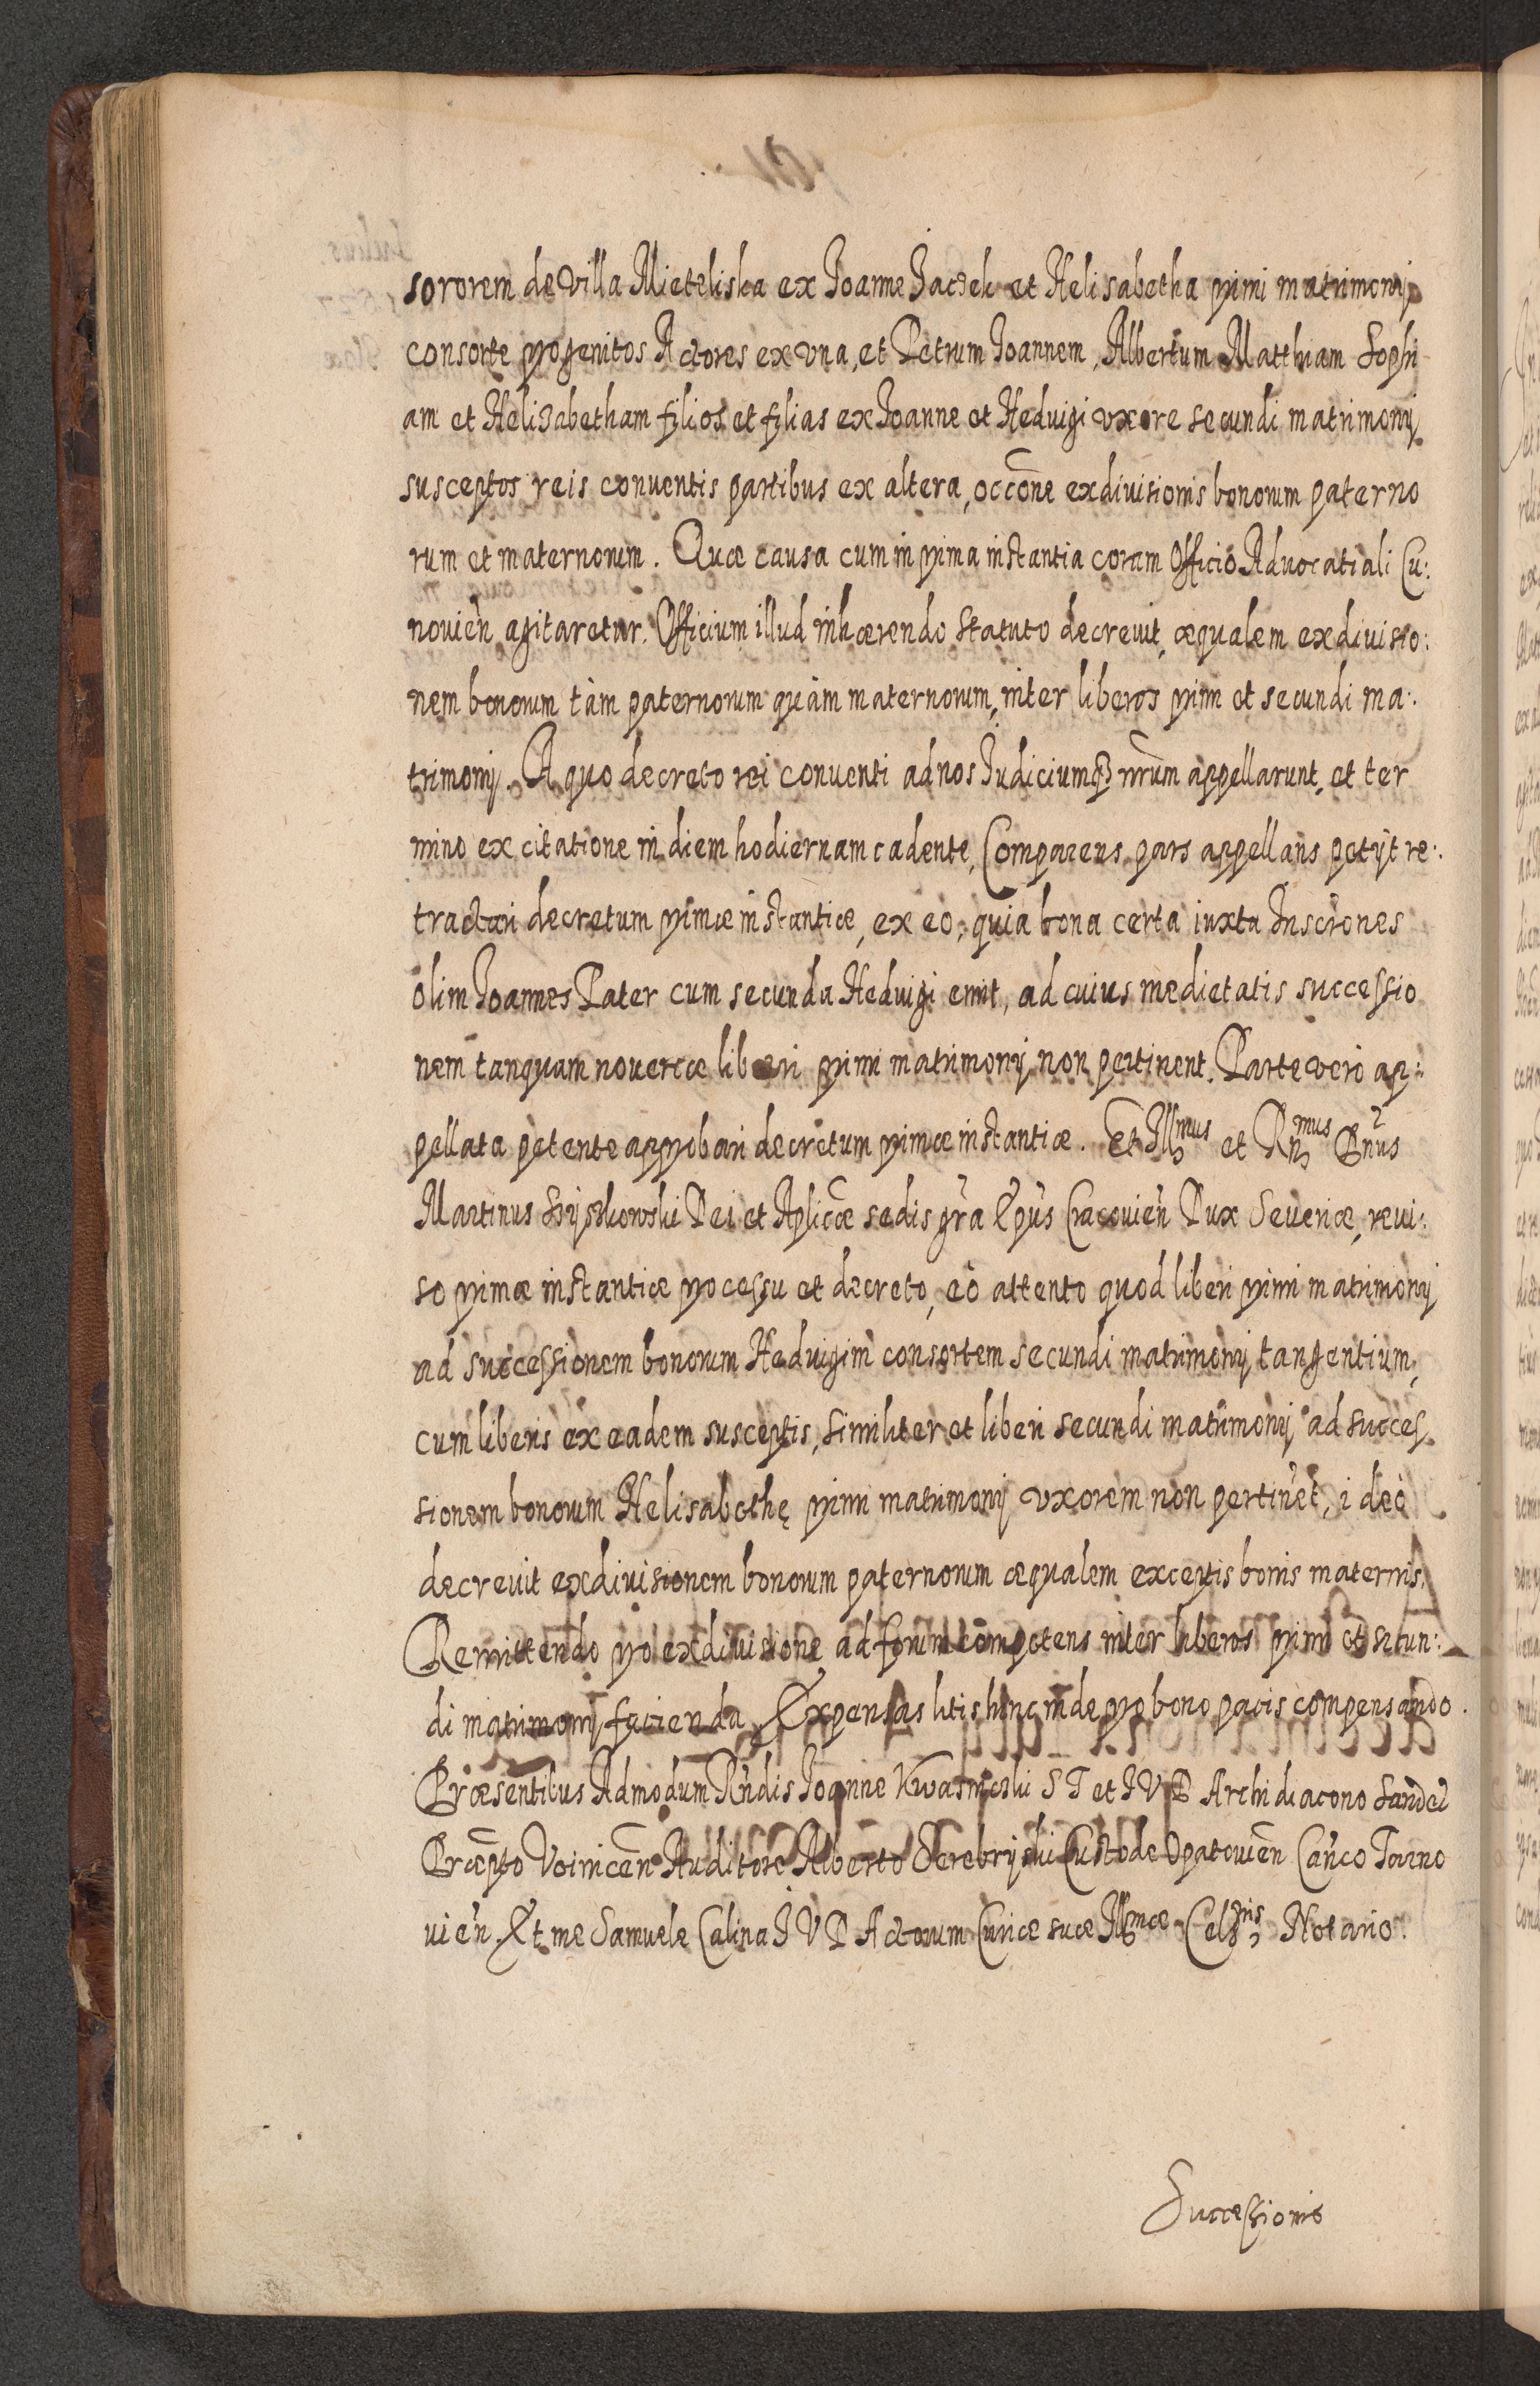 sororem de Villa Mieteliska ex Joanne Jaczek et Helisabetha primi matrimonij
consorte progenitos Actores ex vna, et Petrum Joannem, Albertum Matthiam Sophi
am et Helizabetham filios et filias ex Joanne et Hedvigi vxore secundi matrimonij
susceptos reis conuentis partibus ex altera, occōne exdiuisionis bonorum paterno
rum et maternorum. Quæ causa cum in prima instantia coram Officio Aduocatiali Cu:
nouien̄ agitaretur. Officium illud inhærendo statuto decreuit, æqualem exdiuisio:
nem bonorum tàm paternorum quàm maternorum, inter liberos primi et secundi ma:
trimonij. A quo decreto rei conuenti ad nos Judiciumq₃ nrūm appellarunt, et ter
mino ex citatione in diem hodiernam cadente, Comparens pars appellans petijt re:
tractari decretum primæ instantiæ, ex eo, quia bona certa iuxta Inscr̄iones
olim Joannes Pater cum secunda Hedvigi emit, ad cuius medietatis successio
nem tanquam nouercæ liberi primi matrimonij non pertinent. Parte verò ap:
pellata petente approbari decretum primæ instantiæ. Et Ill<sup>mus</sup> et Rn<sup>mus</sup> Dn̄us
Martinus Szyszkowski Dei et Aplicæ sedis gr̄a Ep̄us Cracouien̄ Dux Seueriæ, reui:
so primæ instantiæ processu et decreto, eò attento quod liberi primi matrimonij
ad successionem bonorum Hedvigim consortem secundi matrimonij tangentium,
cum liberis ex eadem susceptis, similiter et liberi secundi matrimonij ad succes
sionem bonorum Helisabethę primi matrimonij vxorem non pertinet, ideò
decreuit exdiuisionem bonorum paternorum æqualem exceptis bonis maternis.
Remittendo pro exdiuisione ad forum competens inter liberos primi et secun:
di matrimonij facienda, Expensas litis hinc inde pro bono pacis compensando.
Præsentibus Admodum Rn̄dis Joanne Kwasnicski S T et J V D Archidiacono Sandec̄
Præp̄to Voinicen̄ Auditore Alberto Serebryski Custode Opatouien̄ Canc̄o Tarno
uien̄. Et me Samuele Calina J V D Actorum Curiæ suæ Ill<sup>mæ</sup> Cels<sup>nis</sup> Notario.
Successionis